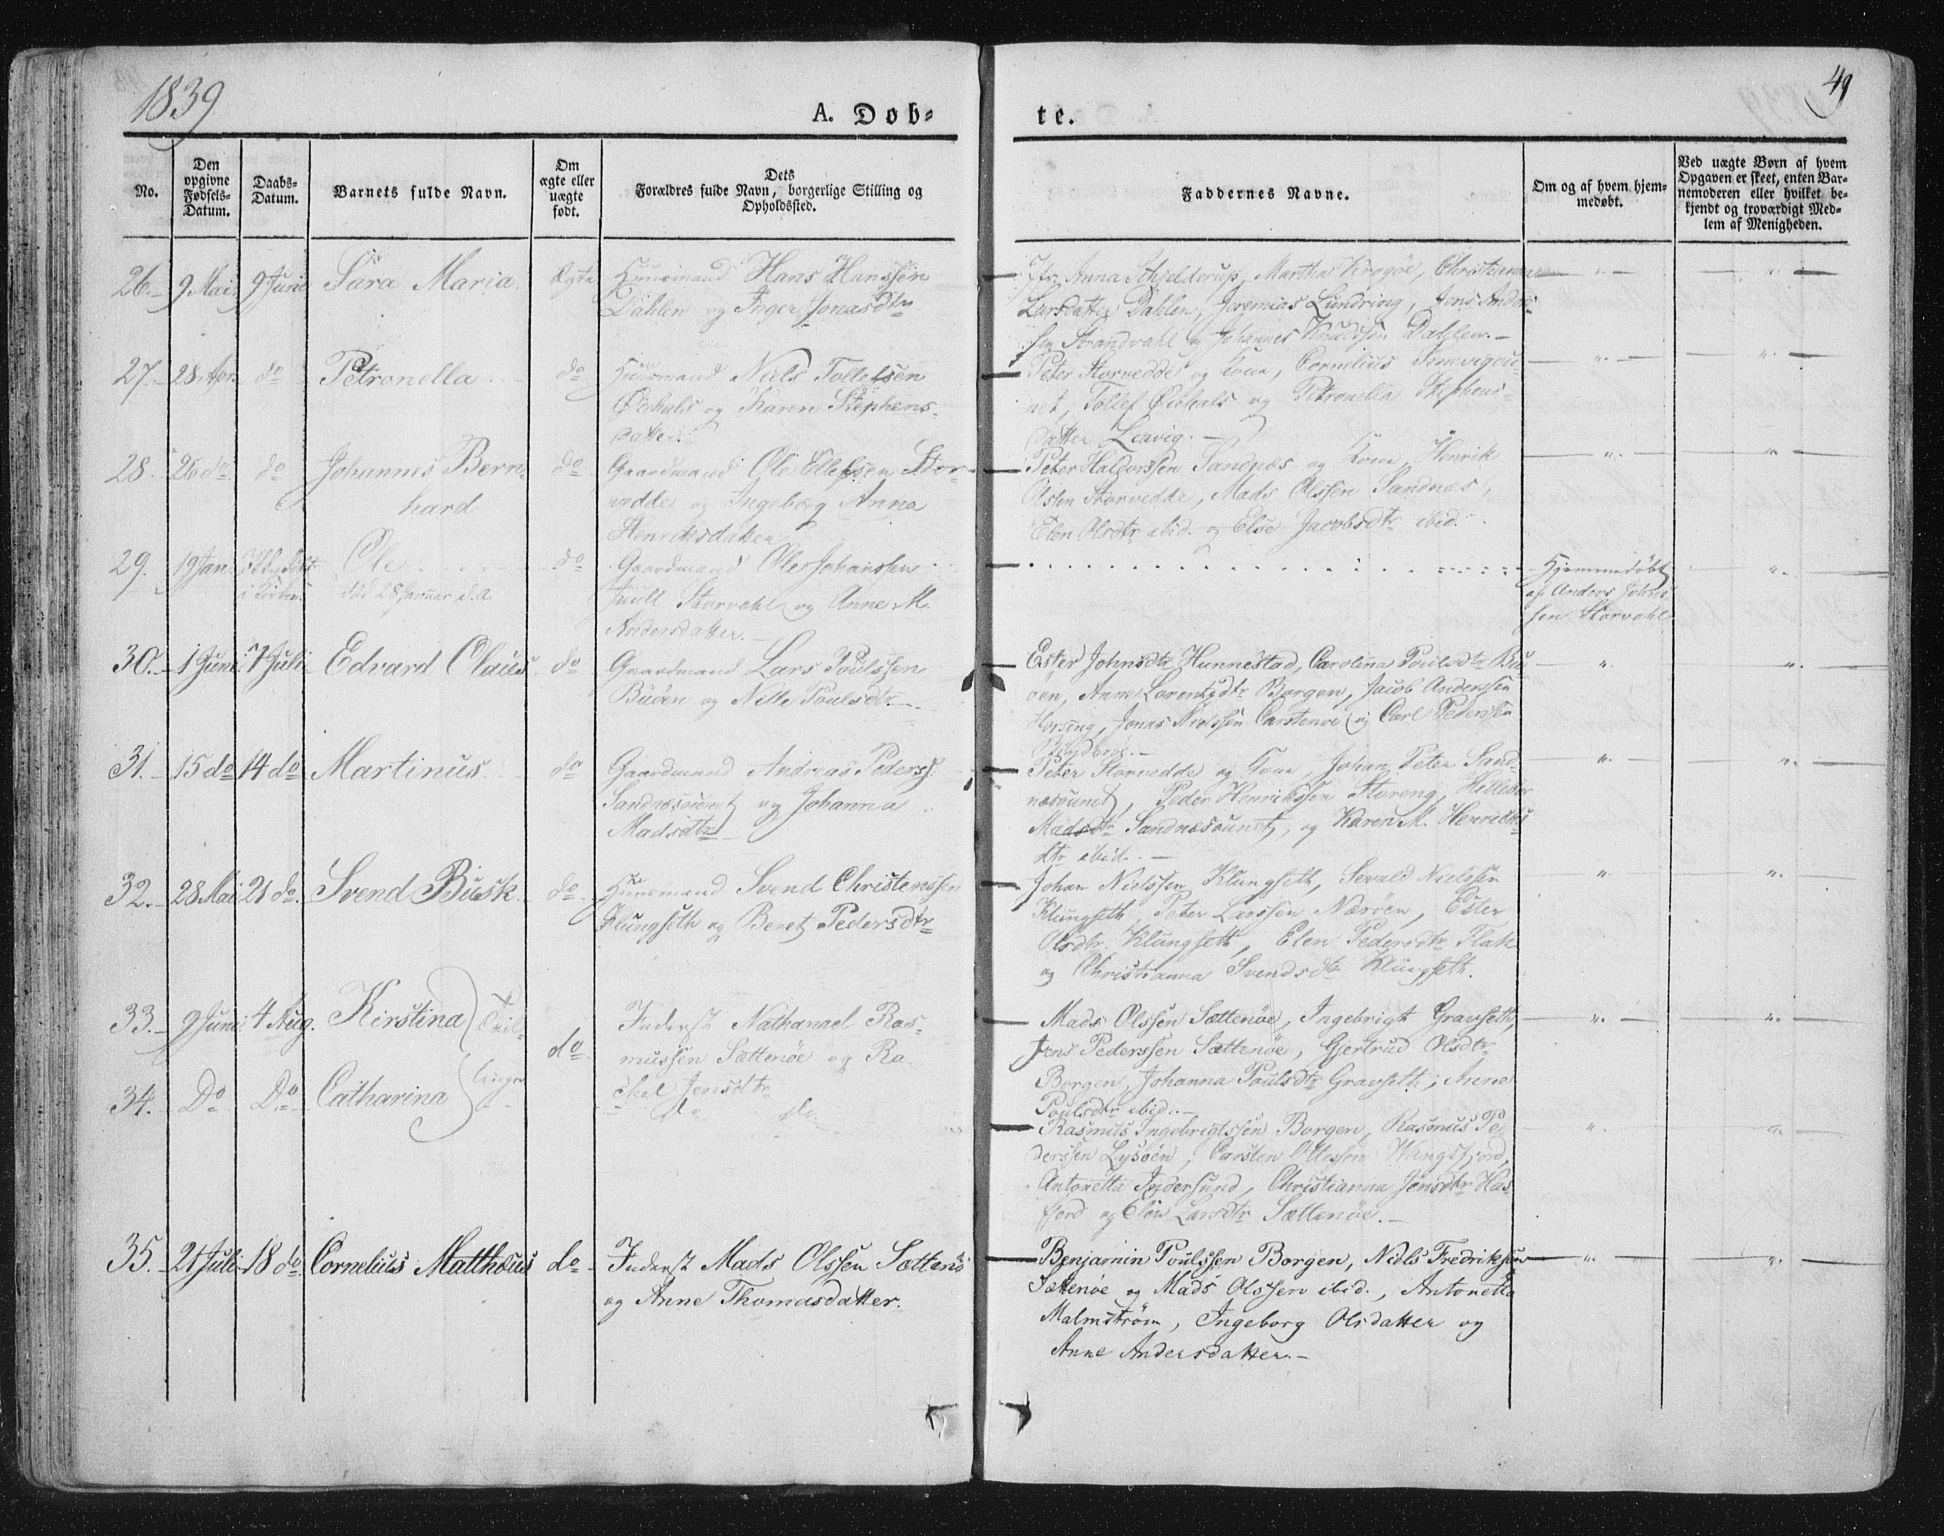 1839
49
A. Dob-
te.
No.
Den
opgivne
Fødsels-
Datum.
Daabs-
Datum.
Barnets fulde Navn.
Om
ægte eller
uægte
født.
Dets
Forældres fulde Navn, borgerlige Stilling og
Opholdssted.
Faddernes Navne.
Om og af hvem hjem-
medøbt.
Ved uægte Børn af hvem
Opgaven er skeet, enten Bar-
nemoderen eller hvilket be-
kjendt og troværdigt Med-
lem af Menigheden.
26. 9 Mai 9 Juni Sara Maria. Ægte Huusmand Hans Hanssen
Dahlen og Inger Jonasdtr
Anna Schjelderup, Martha Krogøe, Christianna
Larsdatter Dahlen, Jeremias Lundring, Jens Andr-
sen Strandvahl og Johannes Knudssen Dahlen.
27. 28 Apr do Petronella do Huusmand Niels Tollefsen
og Karen Stephens-
datter.
Peter Storvedde og Kone, Cornelius
Tollef og Petronella Stephens-
datter
28. 26 do do Johannes Bern-
hard
do Gaardmand Ole Ellefsen Stor-
vedde og Ingeborg Anna
Henriksdatter
Peter Haldorssen Sandnæs og Kone, Henrik
Olsen Storvedde, Mads Olssen Sandnæs,
Elen Olsdtr ibid. og Else Jacobsdtr ibid.
29. 19 Jan Ole
død 28 Januar d.A.
do Gaardmand Ole Johanssen
Storvahl og Anne M.
Andersdatter.
Hjemmedøbt
af Anders Johns-
sen Storvahl
30. 1 Juni 7 Juli Edvard Olaus do Gaardmand Lars Poulssen
Buøen og Nille Poulsdtr.
Ester Johnsdtr Hunnestad, Carolina Poulsdtr Bu-
øen, Anne Lorentsdtr Borgen, Jacob Anderssen
Horsing, Jonas Nielssen Carstenøe og Carl Pederssen
31. 15 do 14 do Martinus do Gaardmand Andreas Peders.
Sandnæsaunet og Johanna
Madsdtr
Peter Storvedde og Kone, Johan Peter Sand-
næsaunet, Peder Henrikssen Storeng,
Madsdtr Sandnæsaunet, og Karen M. Henriks-
dtr ibid.
32. 28 Mai 21 do. Svend Busk do Huusmand Svend Christenssen
Klungseth og Beret Pedersdtr
Johan Nielssen Klungseth, Sevald Nielssen
Klungseth, Peter Larssen Nærøen, Ester
Olsdtr. Klungseth, Elen Pedersdtr Flak
og Christianna Svendsdtr Klungseth.
33. 9 Juni 4 Aug. Kirstina
Tvil-
do Inderst Nathanael Ras-
mussen Sættenøe og Ra-
chel Jensdtr
Mads Olssen Sættenøe, Ingebrigt Gravseth,
Jens Pederssen Sættenøe, Gjertrud Olsdtr
Borgen, Johanna Poulsdtr Gravseth, Anne
Poulsdtr ibid.
34. Do Do Catharina
linger
do do
Rasmus Ingebrigtssen Borgen, Rasmus Pe-
derssen Lysøen, Carsten Ottessen Wangsfjord,
Antonetta Indersund, Christianna Jensdtr Has-
fjord og Larsdtr Sættenøe.
35. 21 Juli 18 do. Cornelius Matthæus do Inderst Mads Olssen Sættenø
og Anne Thomasdatter.
Benjamin Poulssen Borgen, Niels Fredrikssen
Sættenøe og Mads Olssen ibid., Antonetta
Malmstrøm, Ingeborg Olsdatter og
Anne Andersdatter.